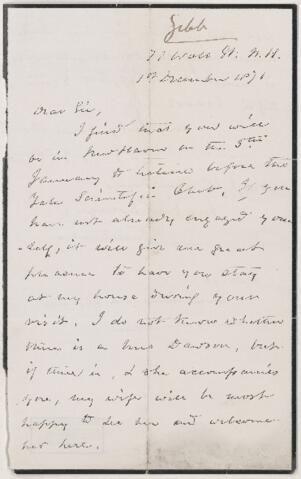 Gibb
72 Wall St. N. H.
1st December 1871
Dear Sir,
I find that you will
be in New Haven on the 5th
January to lecture before the
Yale Scientific Club. If you
have not already engaged your
-self, it will give me great
pleasure to have you stay
at my house during your
visit. I do not know whether
there is a Mrs Dawson, but
if there is, & she accompanies
you, my wife will be most
happy to see her and welcome
her here.